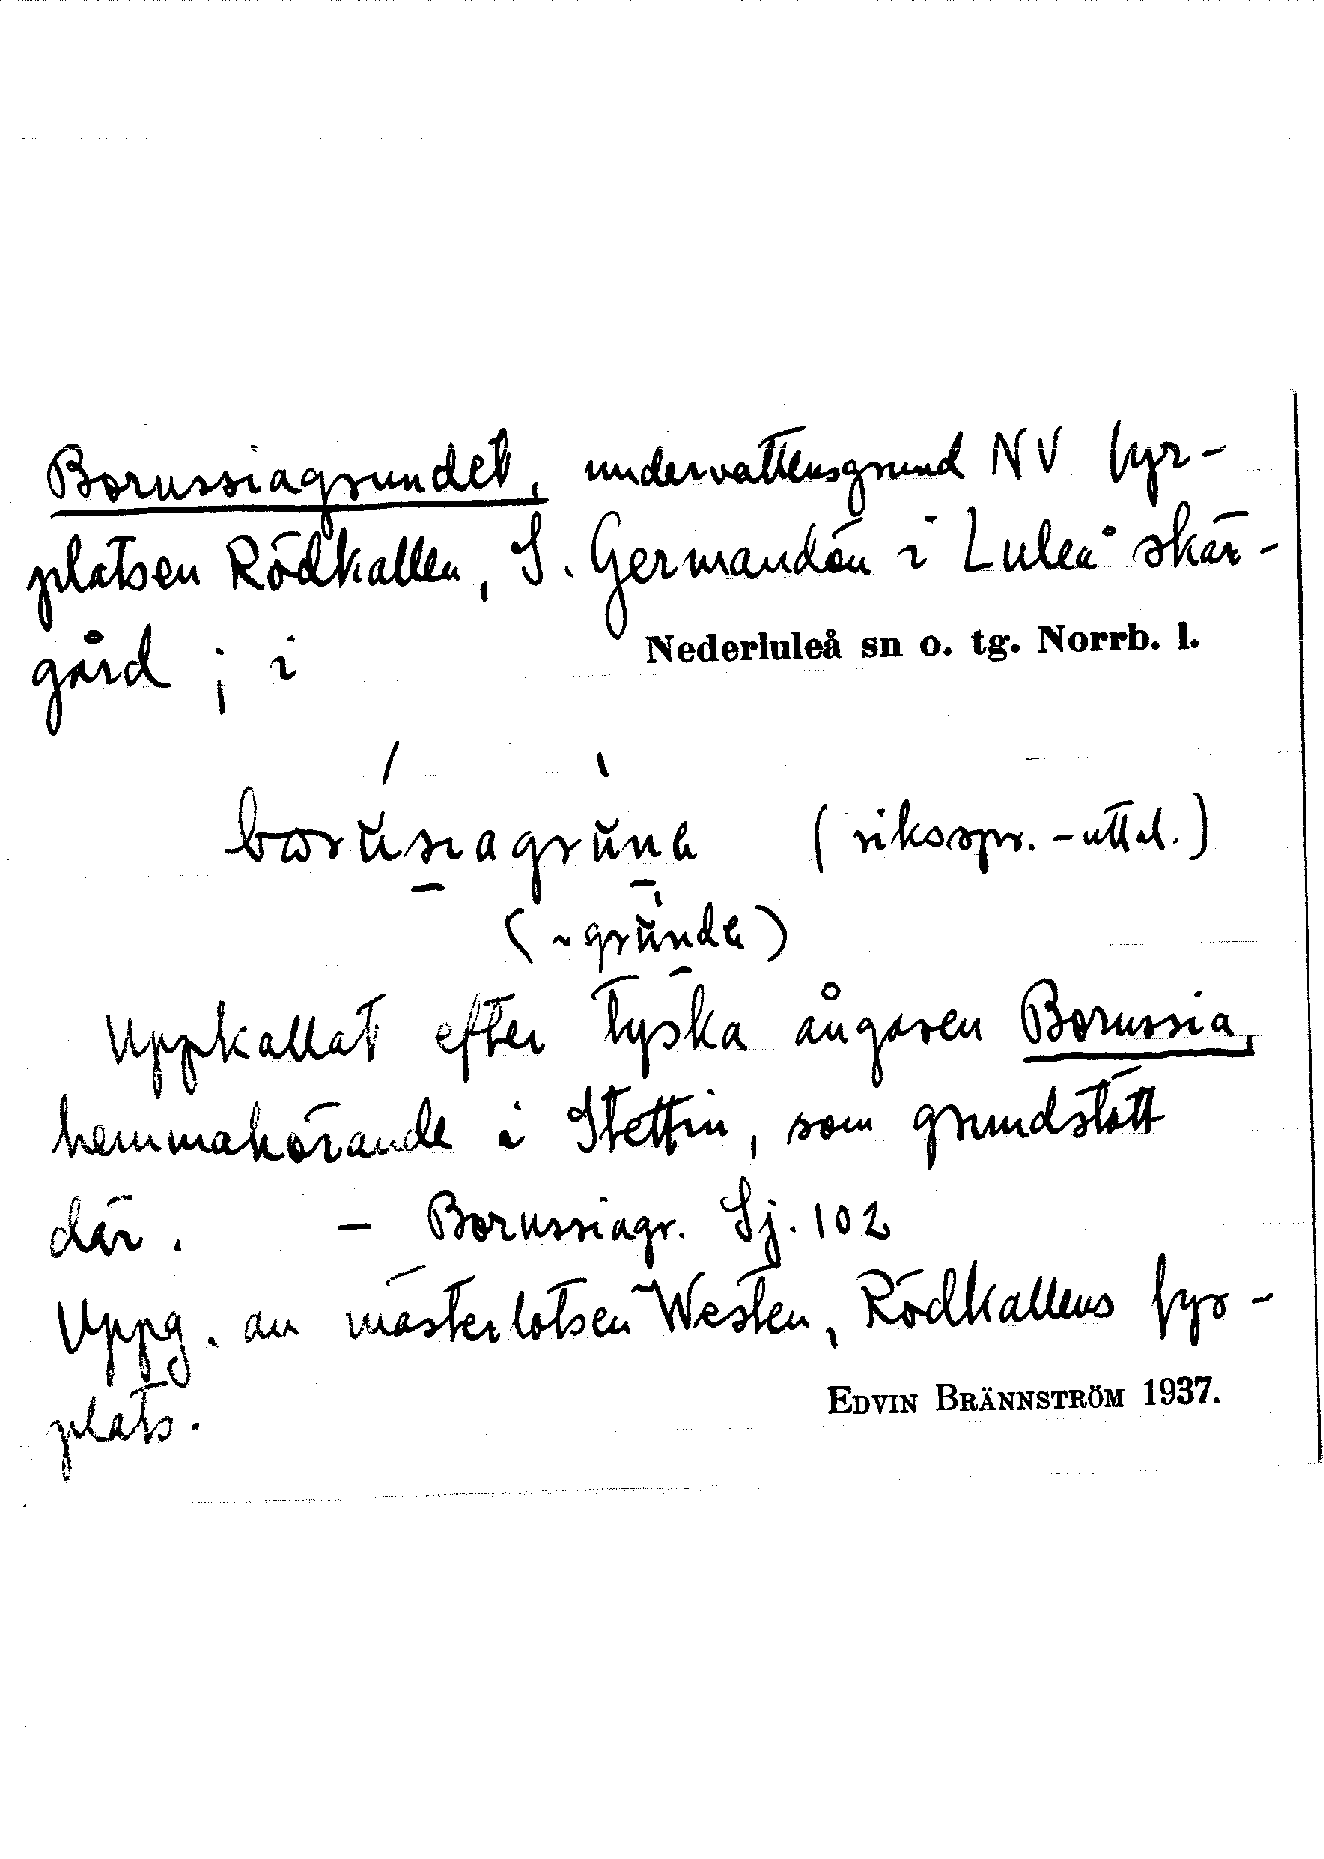 Borussiagrundet, undervattensgrund NV fyr-
platsen Rödkallen, S. Germandön i Luleå skär-
gård ; i Nederluleå sn o. tg. Norrb. l.
(riksspr. -uttal.)
Uppkallat efter tyska ångaren Borussia,
hemmahörande i Stettin, som grundstött
där. – Borussiagr. Sj. 102
Uppg. av mästerlotsen Westen, Rödkallens fyr-
plats. EDVIN BRÄNNSTRÖM 1937.